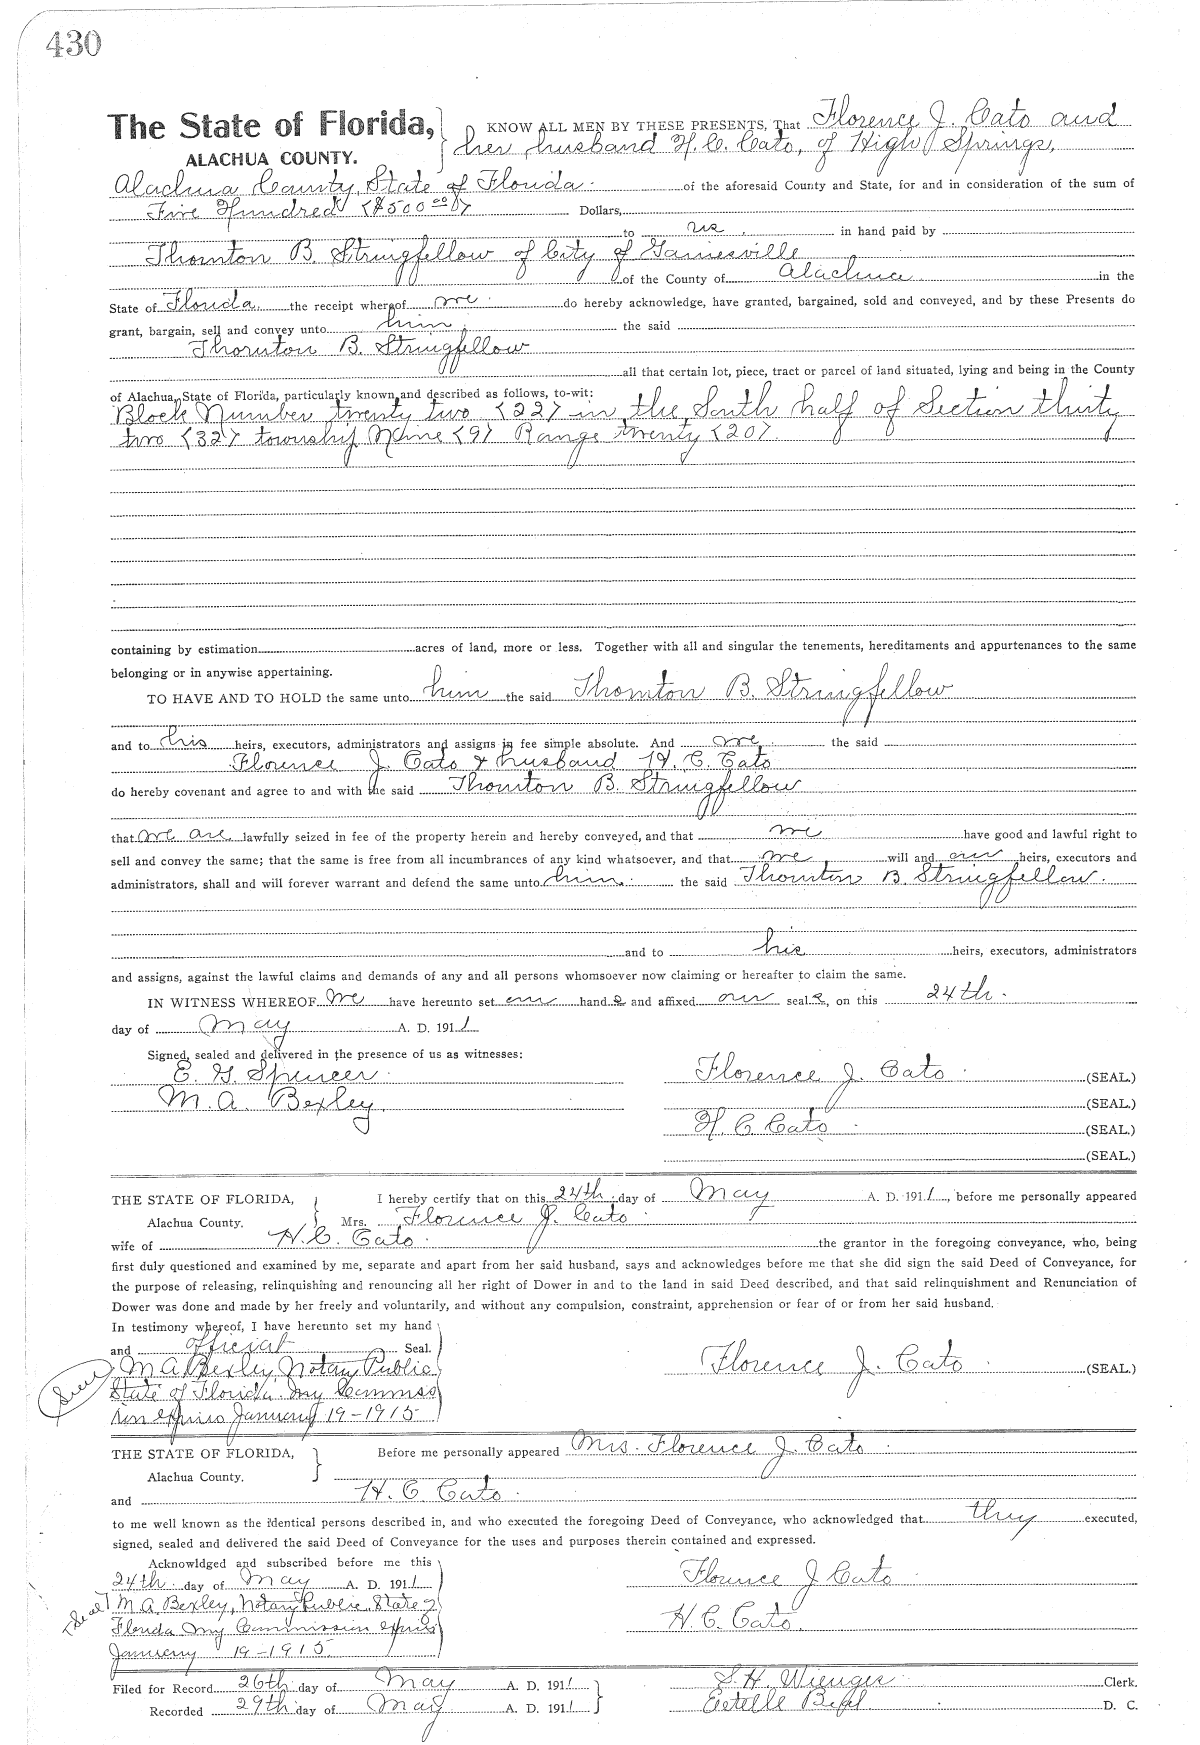 430
The State of Florida, KNOW ALL MEN BY THESE PRESENTS, That Florence J. Cato and
ALACHUA COUNTY. her husband H. C. Cato, of High Springs,
Alachua County, State of Florida of the aforesaid County and State, for and in consideration of the sum of
Five Hundred <$500 00> Dollars,
to us in hand paid by
Thornton B. Stringfellow of City of Gainesville
of the County of Alachua in the
State of Florida the receipt whereof we do hereby acknowledge, have granted, bargained, sold and conveyed, and by these Presents do
grant, bargain, sell and convey unto him the said
Thornton B. Stringfellow
all that certain lot, piece, tract or parcel of land situated, lying and being in the County
of Alachua, State of Florida, particularly known and described as follows, to-wit:
Block Number twenty two <22> in the South half of Section thirty
two <32> township Nine <9> Range twenty <20>.
containing by estimation acres of land, more or less. Together with all and singular the tenements, hereditaments and appurtenances to the same
belonging or in anywise appertaining.
TO HAVE AND TO HOLD the same unto him the said Thornton B. Stringfellow
and to his heirs, executors, administrators and assigns in fee simple absolute. And we the said
Florence J. Cato & husband H. C. Cato
do hereby covenant and agree to and with the said Thornton B. Stringfellow
that we are lawfully seized in fee of the property herein and hereby conveyed, and that we have good and lawful right to
sell and convey the same; that the same is free from all incumbrances of any kind whatsoever, and that we will and our heirs, executors and
administrators, shall and will forever warrant and defend the same unto him the said Thornton B. Stringfellow.
and to his heirs, executors, administrators
and assigns, against the lawful claims and demands of any and all persons whomsoever now claiming or hereafter to claim the same.
IN WITNESS WHEREOF We have hereunto set our hand s and affixed our seal s, on this 24th.
day of May A. D. 1911
Signed, sealed and delivered in the presence of us as witnesses:
E. G. Spencer Florence J. Cato (SEAL.)
M. A. Bexley. (SEAL.)
H. C. Cato (SEAL.)
(SEAL.)
THE STATE OF FLORIDA, I hereby certify that on this 24th. day of May A. D. 1911, before me personally appeared
Alachua County. Mrs. Florence J. Cato
wife of H. C. Cato the grantor in the foregoing conveyance, who, being
first duly questioned and examined by me, separate and apart from her said husband, says and acknowledges before me that she did sign the said Deed of Conveyance, for
the purpose of releasing, relinquishing and renouncing all her right of Dower in and to the land in said Deed described, and that said relinquishment and Renunciation of
Dower was done and made by her freely and voluntarily, and without any compulsion, constraint, apprehension or fear of or from her said husband.
In testimony whereof, I have hereunto set my hand
and official Seal.
M. A. Bexley, Notary Public Florence J. Cato (SEAL)
State of Florida. My Commiss
ion expires January 19-1915
THE STATE OF FLORIDA, Before me personally appeared Mrs. Florence J. Cato
Alachua County.
and H. C. Cato
to me well known as the identical persons described in, and who executed the foregoing Deed of Conveyance, who acknowledged that they executed,
signed, sealed and delivered the said Deed of Conveyance for the uses and purposes therein contained and expressed.
Acknowldged and subscribed before me this
24th. day of May A. D. 1911 Florence J Cato
<Seal> M. A. Bexley, Notary Public, State of H. C. Cato.
Florida. My Commission expires
January 19-1915.
Filed for Record 26th. day of May A. D. 1911 S. H. Wienges Clerk.
Recorded 29th. day of May A. D. 1911 D. C.